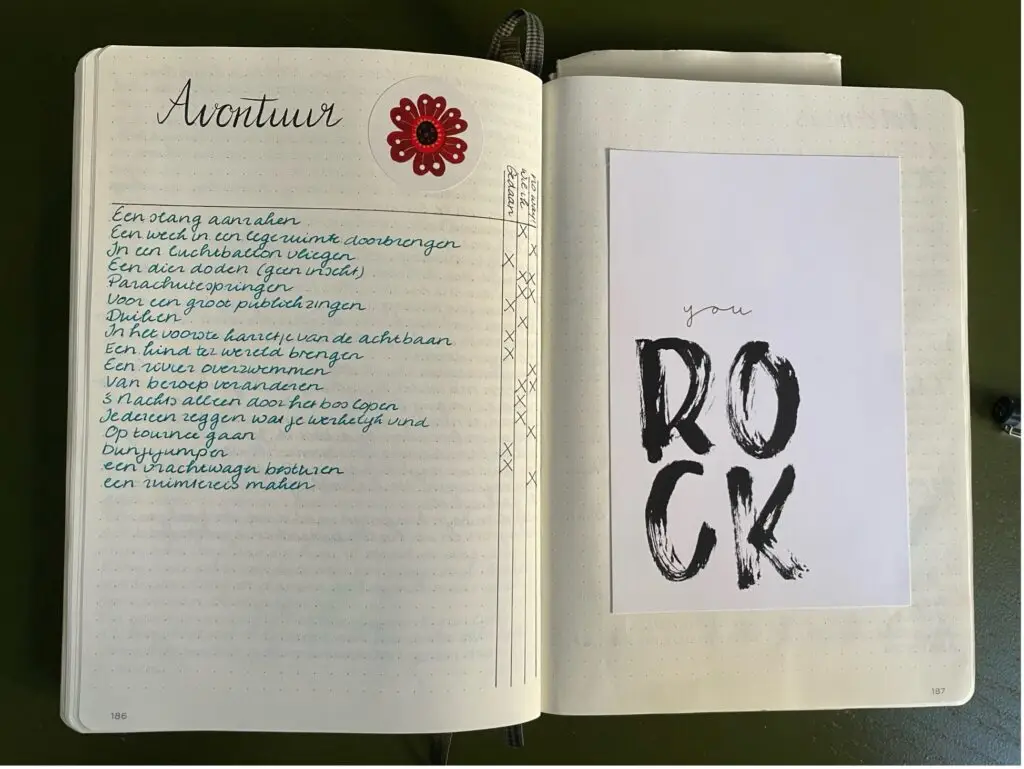 Avontuur
Gedaan
wie ik
no way!
Een slang aanraken
Een week in een lege ruimte doorbrengen
In een luchtballon vliegen
Een dier doden (geen insect)
Parachutespringen
Voor een groot publiek zingen
Duiken
In het voorste karretje van de achtbaan
Een kind ter wereld brengen
Een rivier overzwemmen
Van beroep veranderen
's Nachts alleen door het bos lopen
Iedereen zeggen wat je werkelijk vind
Op tournee gaan
Bungyjumpen
een vrachtwagen besturen
een ruimtereis maken
186
you
RO
CK
187